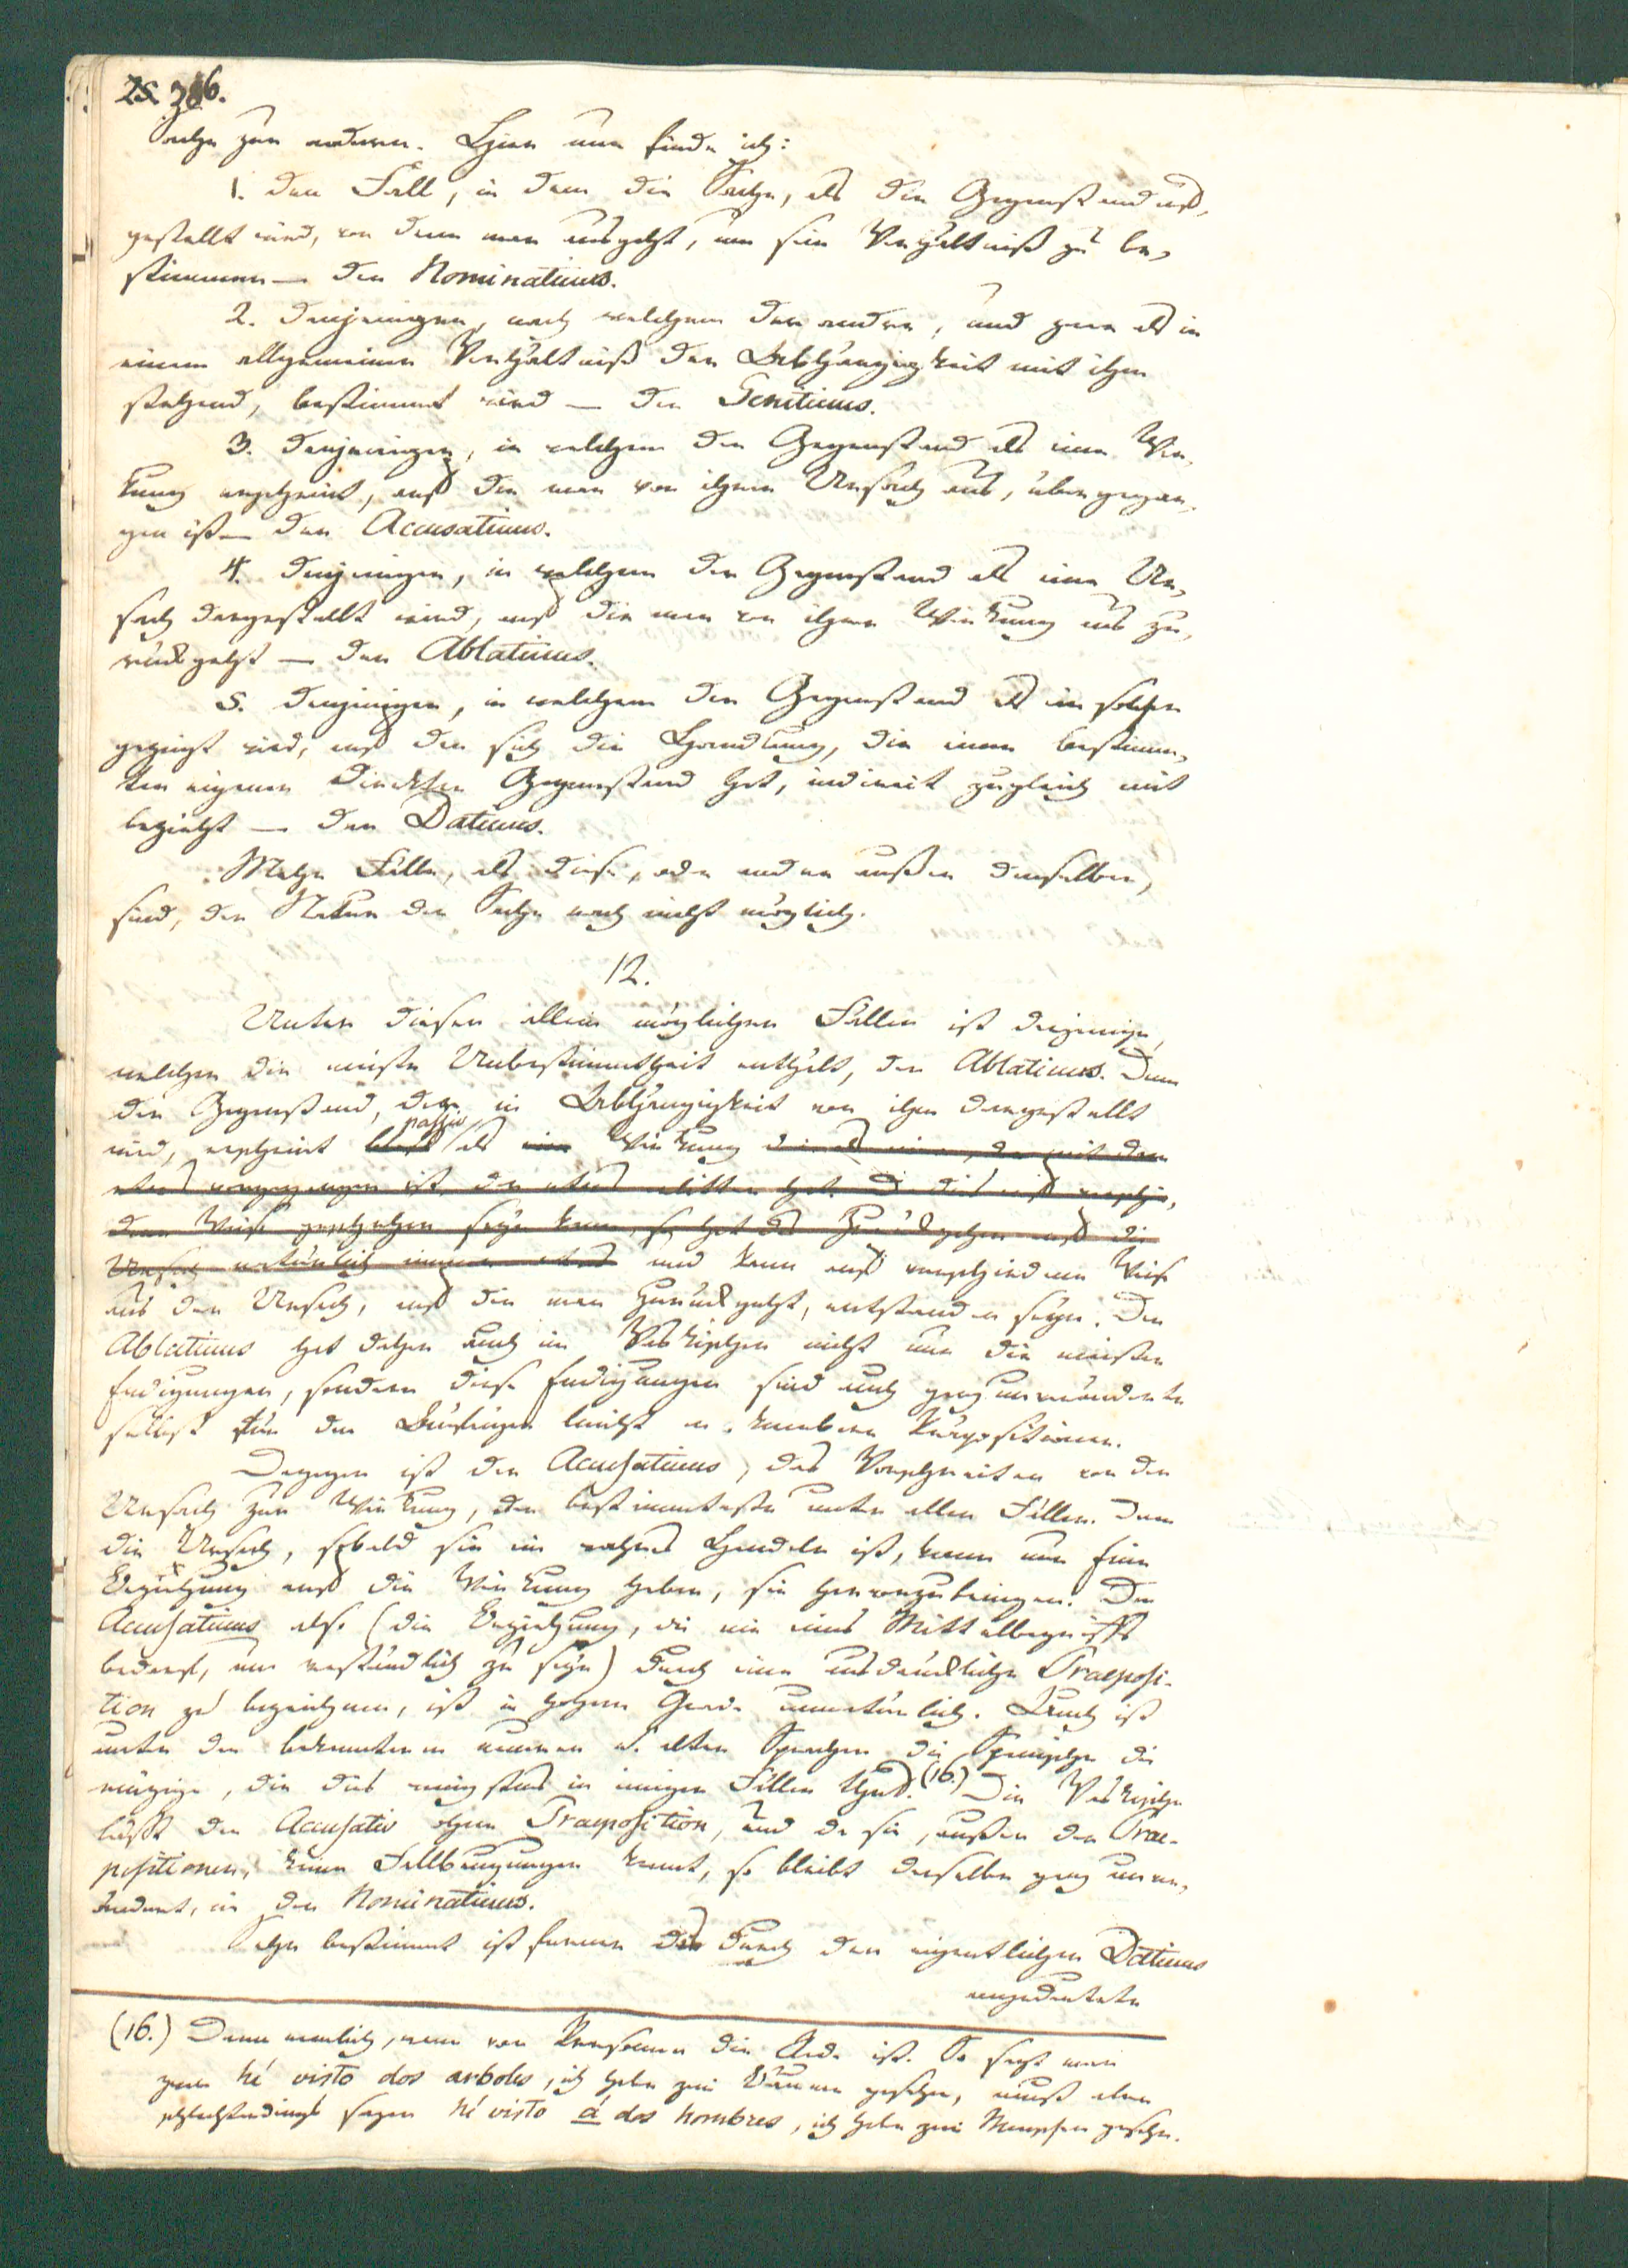 386.
Sache zur andern. Hier nun finde ich:
1. den Fall, in dem die Sache, als der Gegenstand auf-
gestellt wird, von dem man ausgeht, um sein Verhältniß zu be-
stimmen — den Nominativus.
2. denjenigen, nach welchem der andre, und zwar als in
einem allgemeinen Verhältniß der Abhängigkeit mit ihm
stehend, bestimmt wird — den Genitivus.
3. denjenigen, in welchem der Gegenstand als eine Wir-
kung erscheint, auf die man von ihrer Ursach aus, übergegan-
gen ist — den Accusativus.
4. denjenigen, in welchem der Gegenstand als eine Ur-
sach dargestellt wird, auf die man von ihrer Wirkung aus zu-
rückgeht — den Ablativus.
5. denjenigen, in welchem der Gegenstand als ein solcher
gezeigt wird, auf den sich die Handlung, die einen bestimm-
ten eigenen direkten Gegenstand hat, indirect zugleich mit
bezieht — den Dativus.
Mehr Fälle, als diese, oder andre außer denselben,
sind, der Natur der Sache nach nicht möglich.
12.
Unter diesen allein möglichen Fällen ist derjenige,
welcher die meiste Unbestimmtheit enthält, der Ablativus. Denn
der Gegenstand, der in Abhängigkeit von ihm dargestellt
passiv
wird, erscheint bloß als eine Wirkung die als eine, da mit dem
etwas vorgegangen ist, der etwas erlitten hat. Da dies auf verschie-
dene Weise geschehen seyn kann, so hat das Zurückgehen auf die
Ursach natürlich immer etwas und kann auf verschiedene Weise
aus der Ursach, auf die man zurückgeht, entstanden seyn. Der
Ablativus hat daher auch im Vaskischen nicht nur die meisten
Endigungen, sondern diese Endigungen sind auch ganz unverändert
selbst für den Anfänger leicht erkennbare Präpositionen.
Dagegen ist der Accusativus, das Vorschreiten von der
Ursach zur Wirkung, der bestimmteste unter allen Fällen. Denn
die Ursach, sobald sie ein wahres Handeln ist, kann nur Eine
Beziehung auf die Wirkung haben, sie hervorzubringen. Den
Accusativus also (die Beziehung, die nie eines Mittelbegriffs
bedarf, um verständlich zu seyn) durch eine ausdrückliche Praeposi-
tion zu bezeichnen, ist in hohem Grade unnatürlich. Auch ist
unter den bekannteren neueren u. alten Sprachen die Spanische die
einzige, die dies wenigstens in einigen Fällen thut. (16.) Die Vaskische
läßt den Accusativ ohne Praeposition, und da sie, außer den Prae-
positionen, keine Fallbeugungen kennt, so bleibt derselbe ganz unver-
ändert, wie der Nominativus.
Sehr bestimmt ist ferner das durch den eigentlichen Dativus
angedeutete
(16.) Dann nemlich, wenn von Personen die Rede ist. So sagt man
zwar hé visto dos arboles, ich habe zwei Bäume gesehen, muß aber
schlechterdings sagen hé visto á dos hombres, ich habe zwei Menschen gesehn.